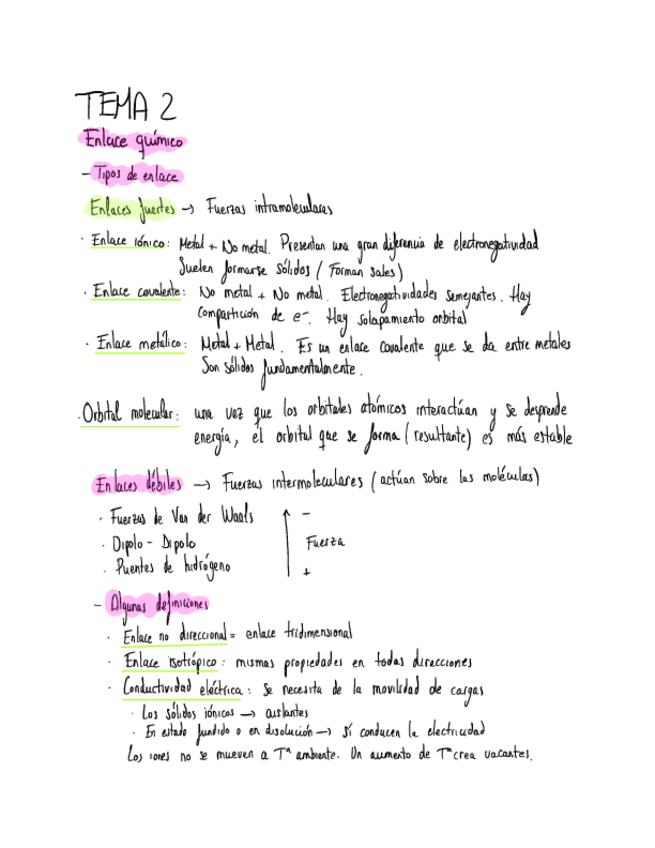 TEMA 2
Enlace químico
- Tipos de enlace
Enlaces fuertes → Fuerzas intramoleculares
· Enlace iónico: Metal + No metal. Presentan una gran diferencia de electronegatividad
Suelen formarse sólidos (Forman sales)
· Enlace covalente: No metal + No metal. Electronegatividades semejantes. Hay
compartición de e-. Hay solapamiento orbital
· Enlace metálico: Metal + Metal. Es un enlace covalente que se da entre metales
Son sólidos fundamentalmente.
· Orbital molecular: una vez que los orbitales atómicos interactúan y se desprende
energía, el orbital que se forma (resultante) es más estable
Enlaces débiles → Fuerzas intermoleculares (actúan sobre las moléculas)
· Fuerzas de Van der Waals ↑ -
· Dipolo - Dipolo Fuerza
· Puentes de hidrógeno +
- Algunas definiciones
· Enlace no direccional = enlace tridimensional
· Enlace isotrópico: mismas propiedades en todas direcciones
· Conductividad eléctrica: Se necesita de la movilidad de cargas
· Los sólidos iónicos → aislantes
· En estado fundido o en disolución → sí conducen la electricidad
Los iones no se mueven a Tª ambiente. Un aumento de Tª crea vacantes.